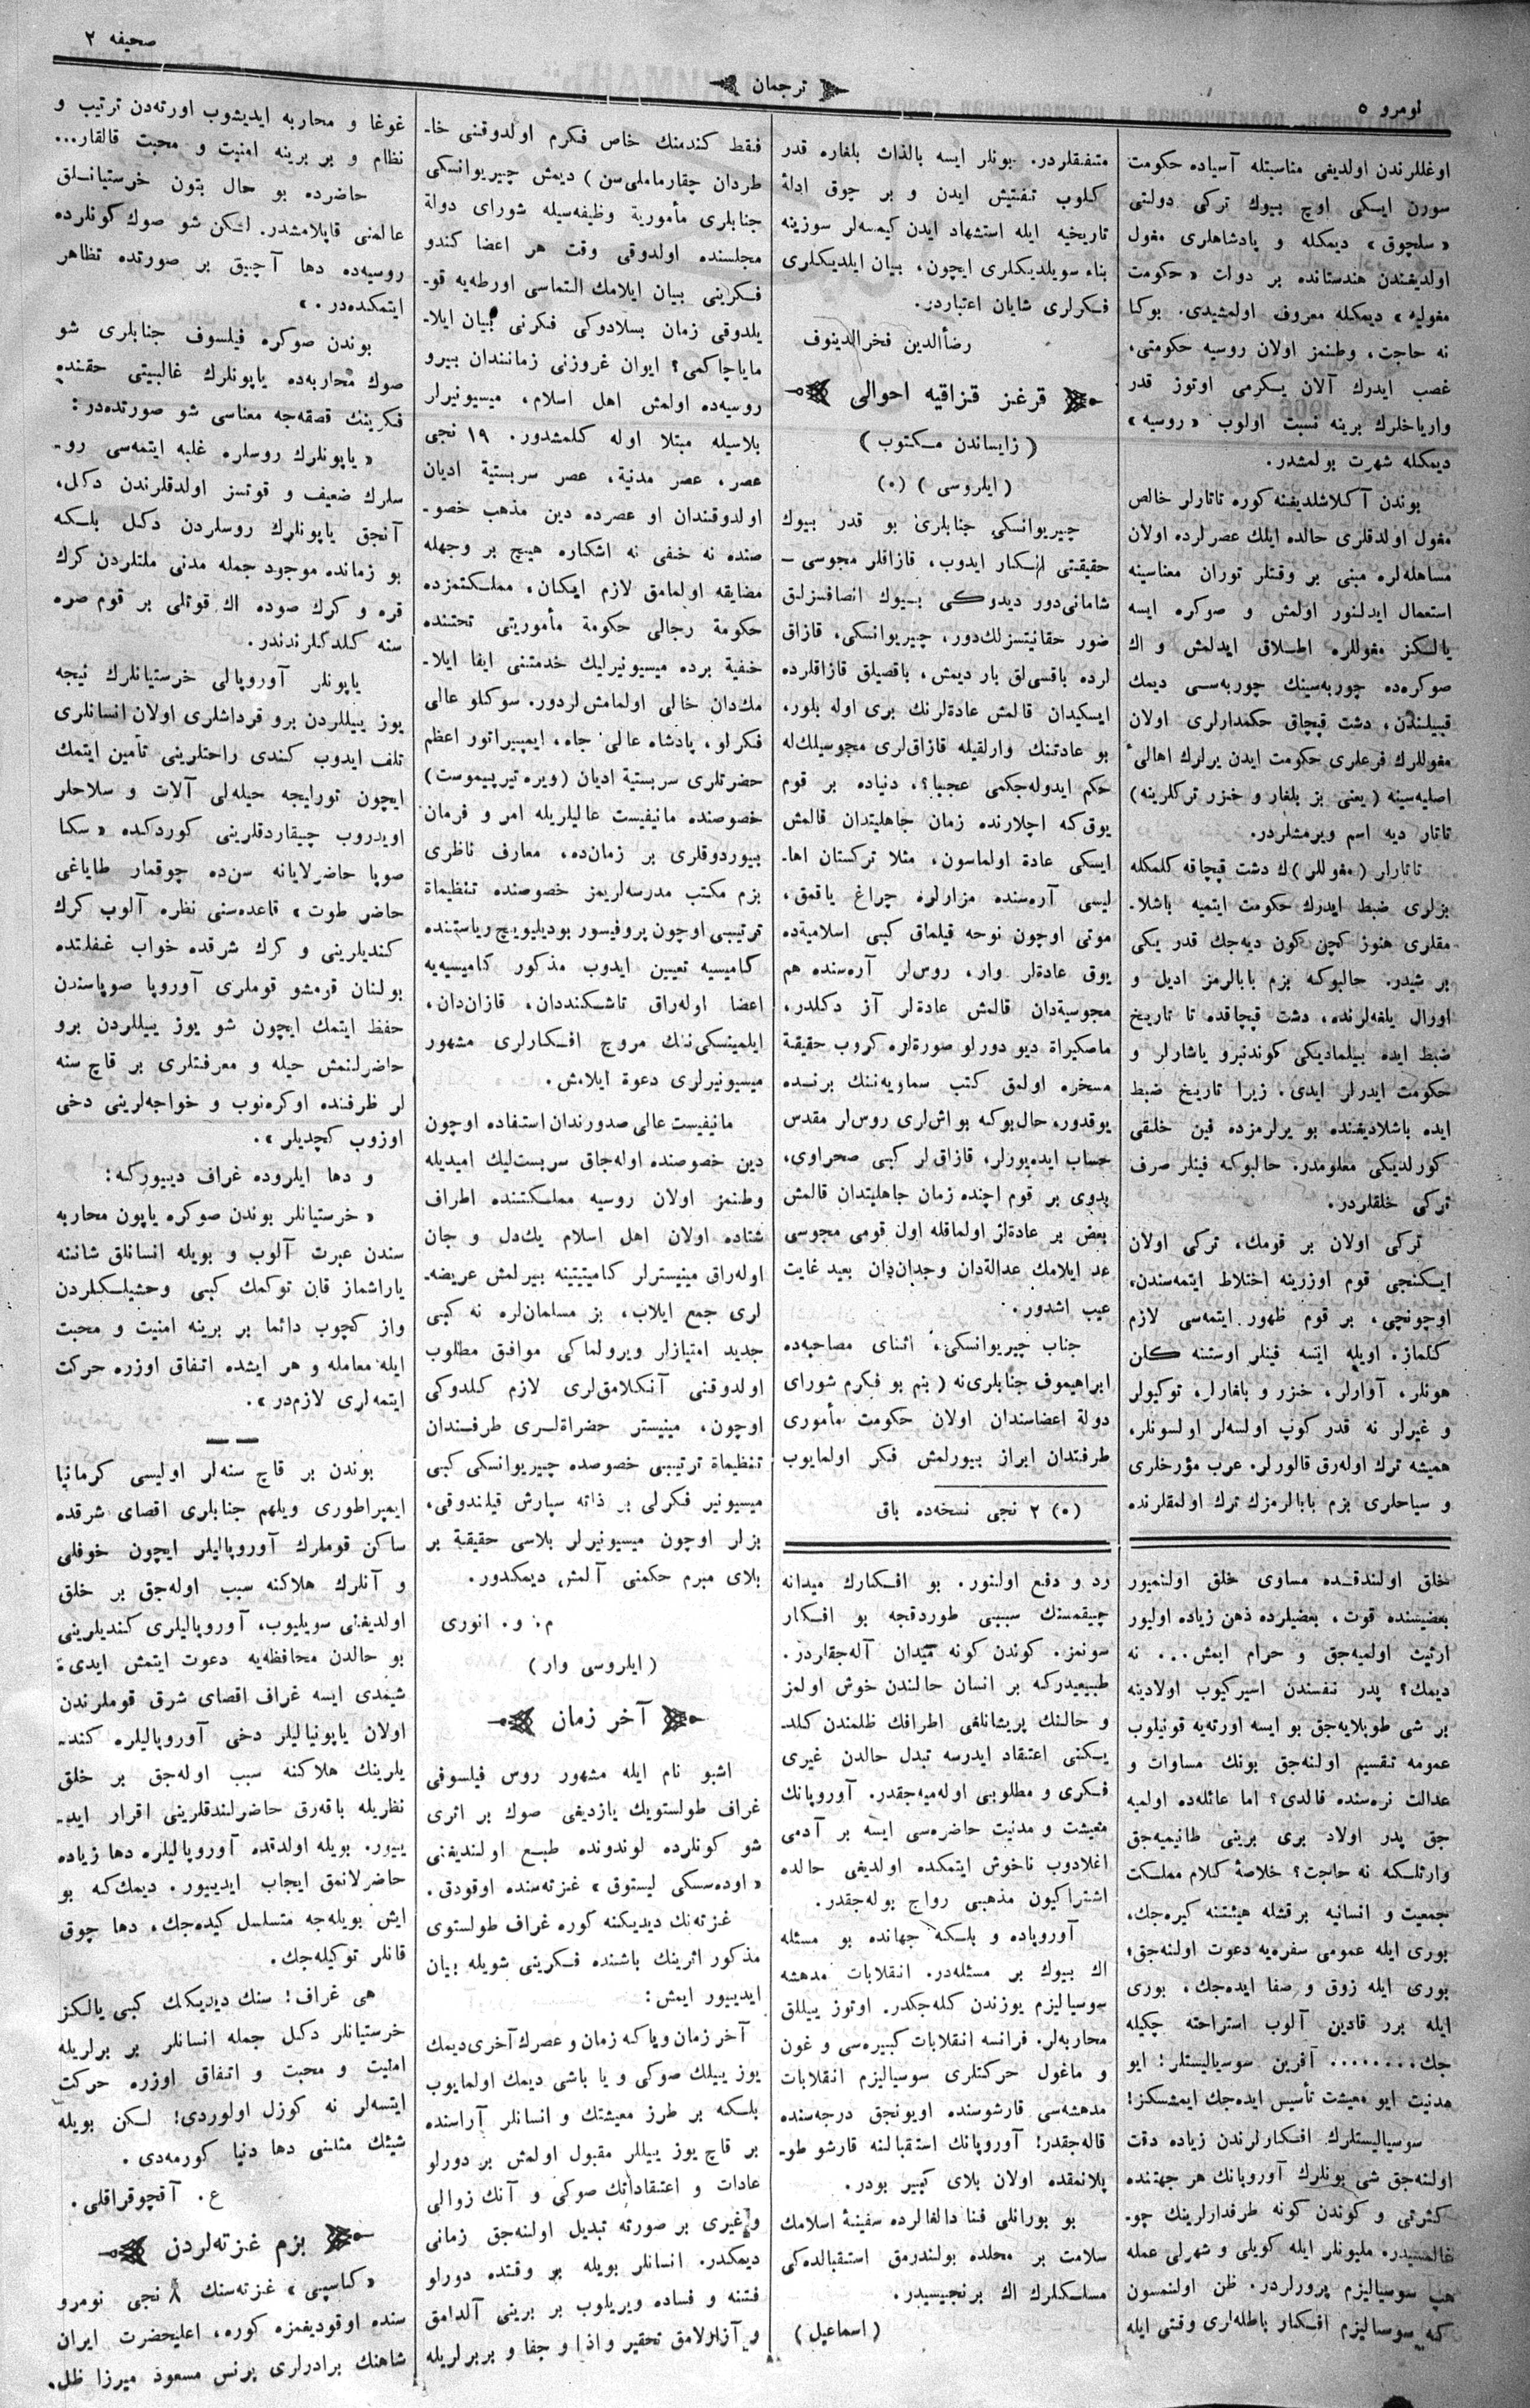 صحیفه ٢
ترجمان
نومرو ٥
اوغللرندن اولدیغی مناسبتله آسیاده حکومت
سورن ایسکی اوچ بیوك ترکی دولتی
«سلچوق» دیمکله و پادشاهلری مغول
اولدیغندن هندستانده بر دولت «حکومت
مغولیه» دیمکله معروف اولمشیدی. بوکا
نه حاجت، وطنمز اولان روسیه حکومتی،
غصب ایدرك آلان یکرمی اوتوز قدر
واریاخلرك برینه نسبت اولوب «روسیه»
دیمکله شهرت بولمشدر.
بوندن آکلاشلدیغنه کوره تاتارلر خالص
مغول اولدقلری حالده ایلك عصرلرده اولان
مساهله‌لره مبنی بر وقتلر توران معناسینه
استعمال ایدلنور اولمش و صوکره ایسه
یالکز مغوللره اطلاق ایدلمش و اك
صوکره‌ده چوربه‌سینك چوربه‌سی دیمك
قبیلندن، دشت قپچاق حکمدارلری اولان
مغوللرك فرعلری حکومت ایدن یرلرك اهالیٔ
اصلیه‌سینه (یعنی بز بلغار و خزر ترکلرینه)
تاتار دیه اسم ویرمشلردر.
تاتارلر (مغوللر)ك دشت قپچاقه کلمکله
بزلری ضبط ایدرك حکومت ایتمیه باشلا-
مقلری هنوز کچن کون دیه‌جك قدر یکی
بر شیدر. حالبوکه بزم بابالرمز ادیل و
اورال یلغه‌لرنده، دشت قپچاقده تا تاریخ
ضبط ایده بیلمادیکی کوندنبرو یاشارلر و
حکومت ایدرلر ایدی. زیرا تاریخ ضبط
ایده باشلادیغنده بو یرلرمزده فین خلقی
کورلدیکی معلومدر. حالبوکه فینلر صرف
ترکی خلقلردر.
ترکی اولان بر قومك، ترکی اولان
ایکنجی قوم اوزرینه اختلاط ایتمه‌سندن،
اوچونچی، بر قوم ظهور ایتمه‌سی لازم
کلماز. اویله ایسه فینلر اوستنه کلن
هونلر، آوارلر، خزر و بلغارلر، توکیولر
و غیرلر نه قدر کوپ اولسه‌لر اولسونلر،
همیشه ترك اوله‌رق قالورلر. عرب مؤرخلری
و سیاحلری بزم بابالرمزك ترك اولمقلرنده
متفقلردر. بونلر ایسه بالذات بلغاره قدر
کلوب تفتیش ایدن و بر چوق ادلهٔ
تاریخیه ایله استشهاد ایدن کیمسه‌لر سوزینه
بناء سویلدیکلری ایچون، بیان ایلدیکلری
فکرلری شایان اعتباردر.
رضأالدین فخرالدینوف
قرغز قزاقیه احوالی
(زایساندن مکتوب)
(ایلروسی) (٥)
چیریوانسکی جنابلری بو قدر بیوك
حقیقتی انکار ایدوب، قازاقلر مجوسی –
شامانی‌دور دیدوکی بیوك انصافسزلق
ضور حقانیتسزلك‌دور، چیریوانسکی، قازاق
لرده باقسی‌لق بار دیمش، باقصیلق قازاقلرده
ایسکیدان قالمش عادةلرنك بری اوله بلور،
بو عادتنك وارلقیله قازاق‌لری مجوسیلك‌له
حکم ایدوله‌جکمی عجبا؟، دنیاده بر قوم
یوق‌که اچلارنده زمان جاهلیتدان قالمش
ایسکی عادة اولماسون، مثلا ترکستان اها-
لیسی آره‌سنده مزارلره چراغ یاقمق،
موتی اوچون نوحه قیلماق کبی اسلامیةده
یوق عادةلر وار، روس‌لر آره‌سنده هم
مجوسیةدان قالمش عادةلر آز دکلدر،
ماصکیراة دیو دورلو صورةلره کروب حقیقة
مسخره اولمق کتب سماویه‌ننك برنسده
یوقدور، حال‌بوکه بو اش‌لری روس‌لر مقدس
حساب ایده‌یورلر، قازاق‌لر کبی صحراوی،
بدوی بر قوم اچنده زمان جاهلیتدان قالمش
بعض بر عادةلر اولماقله اول قومی مجوسی
عد ایلامك عدالةدان وجدان‌دان بعید غایت
عیب اشدور.
جناب چیریوانسکی، اثنای مصاحبه‌ده
ابراهیموف جنابلری‌نه (بنم بو فکرم شورای
دولة اعضاسندان اولان حکومت مأموری
طرفندان ابراز بیورلمش فکر اولمایوب
(٥) ٢ نجی نسخه‌ده باق
فقط کندمنك خاص فکرم اولدوقنی خا-
طردان چقارماملی‌سن) دیمش چیریوانسکی
جنابلری مأموریة وظیفه‌سیله شورای دولة
مجلسنده اولدوقی وقت هر اعضا کندو
فکرینی بیان ایلامك التماسی اورطه‌یه قو-
یلدوقی زمان بسلادوکی فکرنی بیان ایلا-
مایاجاکمی؟ ایوان غروزنی زمانندان بیرو
روسیه‌ده اولمش اهل اسلام، میسیونیرلر
بلاسیله مبتلا اوله کلمشدور. ١٩ نجی
عصر، عصر مدنیة، عصر سربستیة ادیان
اولدوقندان او عصرده دین مذهب خصو-
صنده نه خفی نه اشکاره هیچ بر وجهله
مضایقه اولمامق لازم ایکان، مملکتمزده
حکومة رجالی حکومة مأموریتی تحتنده
خفیة برده میسیونیرلیك خدمتنی ایفا ایلا-
مك‌دان خالی اولمامش‌لردور. سوکلو عالی
فکرلو، پادشاه عالی جاه، ایمپیراتور اعظم
حضرتلری سربستیة ادیان (ویره تیرپیموست)
خصوصنده مانیفیست عالیلریله امر و فرمان
بیوردوقلری بر زمان‌ده، معارف ناظری
بزم مکتب مدرسه‌لریمز خصوصنده تنظیماة
ترتیبی اوچون پروفیسور بودیلیویچ ریاستنده
کامیسیه تعیین ایدوب مذکور کامیسیه‌یه
اعضا اوله‌راق تاشکنددان، قازان‌دان،
ایلمینسکی‌ننك مروج افکارلری مشهور
میسیونیرلری دعوة ایلامش.
مانیفیست عالی صدورندان استفاده اوچون
دین خصوصنده اوله‌جاق سربست‌لیك امیدیله
وطنمز اولان روسیه مملکتنده اطراف
شتاده اولان اهل اسلام یك‌دل و جان
اوله‌راق مینیسترلر کامیتیتینه بیرلمش عریضه-
لری جمع ایلاب، بز مسلمان‌لره نه کبی
جدید امتیازلر ویرولماکی موافق مطلوب
اولدوقنی آنکلامق‌لری لازم کلدوکی
اوچون، مینیستر حضراةلری طرفندان
تنظیماة ترتیبی خصوصده چیریوانسکی کبی
میسیونیر فکرلی بر ذاته سپارش قیلندوقی،
بزلر اوچون میسیونیرلر بلاسی حقیقة بر
بلای مبرم حکمنی آلمش دیمکدور.
م. و. انوری
(ایلروسی وار)
آخر زمان
اشبو نام ایله مشهور روس فیلسوفی
غراف طولستویك یازدیغی صوك بر اثری
شو کونلرده لوندونده طبع اولندیغنی
«اوده‌سسکی لیستوق» غزته‌سنده اوقودق.
غزته‌نك دیدیکنه کوره غراف طولستوی
مذکور اثرینك باشنده فکرینی شویله بیان
ایدییور ایمش:
آخر زمان ویاکه زمان و عصرك آخری دیمك
یوز ییلك صوکی و یا باشی دیمك اولمایوب
بلکه بر طرز معیشتك و انسانلر آراسنده
بر قاچ یوز ییللر مقبول اولمش بر دورلو
عادات و اعتقاداتك صوکی و آنك زوالی
و غیری بر صورته تبدیل اولنه‌جق زمانی
دیمکدر. انسانلر بویله بر وقتده دورلو
فتنه و فساده ویریلوب بر برینی آلدامق
و آزارلامق تحقیر و اذا و جفا و بربرلریله
غوغا و محاربه ایدیشوب اورته‌دن ترتیب و
نظام و بر برینه امنیت و محبت قالقار...
حاضرده بو حال بتون خرستیانلق
عالمنی قاپلامشدر. لکن شو صوك کونلرده
روسیه‌ده دها آچیق بر صورتده تظاهر
ایتمکده‌در.»
بوندن صوکره فیلسوف جنابلری شو
صوك محاربه‌ده یاپونلرك غالبیتی حقنده
فکرینك قصقه‌جه معناسی شو صورتده‌در:
«یاپونلرك روسلره غلبه ایتمه‌سی رو-
سلرك ضعیف و قوتسز اولدقلرندن دکل،
آنجق یاپونلرك روسلردن دکل بلکه
بو زمانده موجود جمله مدنی ملتلردن کرك
قره و کرك صوده اك قوتلی بر قوم صره
سنه کلدکلرندندر.
یاپونلر آوروپالی خرستیانلرك نیجه
یوز ییللردن برو قرداشلری اولان انسانلری
تلف ایدوب کندی راحتلرینی تأمین ایتمك
ایچون تورلیجه حیله‌لی آلات و سلاحلر
اویدروب چیقاردقلرینی کوردکده «سکا
صوپا حاضرلایانه سن‌ده چوقمار طایاغی
حاضر طوت» قاعده‌سنی نظره آلوب کرك
کندیلرینی و کرك شرقده خواب غفلتده
بولنان قومشو قوملری آوروپا صوپاسندن
حفظ ایتمك ایچون شو یوز ییللردن برو
حاضرلنمش حیله و معرفتلری بر قاچ سنه
لر ظرفنده اوکره‌نوب و خواجه‌لرینی دخی
اوزوب کچدیلر».
و دها ایلروده غراف دییورکه:
«خرستیانلر بوندن صوکره یاپون محاربه
سندن عبرت آلوب و بویله انسانلق شاننه
یاراشماز قان توکمك کبی وحشیلکلردن
واز کچوب دائما بر برینه امنیت و محبت
ایله معامله و هر ایشده اتفاق اوزره حرکت
ایتمه‌لری لازم‌در».
بوندن بر قاچ سنه‌لر اولیسی کرمانیا
ایمپراطوری ویلهم جنابلری اقصای شرقده
ساکن قوملرك آوروپالیلر ایچون خوفلی
و آنلرك هلاکنه سبب اوله‌جق بر خلق
اولدیغنی سویلیوب، آوروپالیلری کندیلرینی
بو حالدن محافظه‌یه دعوت ایتمش ایدی:
شیمدی ایسه غراف اقصای شرق قوملرندن
اولان یاپونیالیلر دخی آوروپالیلره کند-
یلرینك هلاکنه سبب اوله‌جق بر خلق
نظریله باقه‌رق حاضرلندقلرینی اقرار اید-
ییور. بویله اولدقده آوروپالیلره دها زیاده
حاضرلانمق ایجاب ایدییور. دیمك‌که بو
ایش بویله‌جه متسلسل کیده‌جك، دها چوق
قانلر توکیله‌جك.
هی غراف! سنك دیدیکك کبی یالکز
خرستیانلر دکل جمله انسانلر بر برلریله
امنیت و محبت و اتفاق اوزره حرکت
ایتسه‌لر نه کوزل اولوردی! لکن بویله
شیئك مثلنی دها دنیا کورمه‌دی.
ع. آقچوقراقلی.
بزم غزته‌لردن
«کاسپی» غزته‌سنك ٨ نجی نومرو
سنده اوقودیغمزه کوره، اعلیحضرت ایران
شاهنك برادرلری پرنس مسعود میرزا ظل
خلق اولندقده مساوی خلق اولنمیور
بعضیسنده قوت، بعضیلرده ذهن زیاده اولیور
ارثیت اولمیه‌جق و حرام ایمش... نه
دیمك؟ پدر نفسندن اسیرکیوب اولادینه
بر شی طوپلایه‌جق بو ایسه اورته‌یه قونیلوب
عمومه تقسیم اولنه‌جق بونك مساوات و
عدالت نره‌سنده قالدی؟ اما عائله‌ده اولمیه
جق پدر اولاد بری برینی طانیمیه‌جق
وارثلکه نه حاجت؟ خلاصهٔ کلام مملکت
جمعیت و انسانیه برقشله هیئتنه کیره‌جك،
بوری ایله عمومی سفره‌یه دعوت اولنه‌جق؛
بوری ایله زوق و صفا ایده‌جك، بوری
ایله برر قادین آلوب استراحته چکیله
جك........ آفرین سوسیالیستلر! ایو
مدنیت ایو معیشت تأسیس ایده‌جك ایمشسکز!
سوسیالیستلرك افکارلرندن زیاده دقت
اولنه‌جق شی بونلرك آوروپانك هر جهتنده
کثرتی و کوندن کونه طرفدارلرینك چو-
غالمسیدر. ملیونلر ایله کویلی و شهرلی عمله
هپ سوسیالیزم پرورلردر. ظن اولنمسون
که سوسیالیزم افکار باطله‌لری وقتی ایله
رد و دفع اولنور. بو افکارك میدانه
چیقمسنك سببی طوردقجه بو افکار
سونمز. کوندن کونه میدان آله‌جقلردر.
طبیعیدرکه بر انسان حالندن خوش اولمز
و حالنك پریشانلغی اطرافك ظلمندن کلد-
یکنی اعتقاد ایدرسه تبدل حالدن غیری
فکری و مطلوبی اوله‌میه‌جقدر. آوروپانك
معیشت و مدنیت حاضره‌سی ایسه بر آدمی
اغلادوب ناخوش ایتمکده اولدیغی حالده
اشتراکیون مذهبی رواج بوله‌جقدر.
آوروپاده و بلکه جهانده بو مسئله
اك بیوك بر مسئله‌در. انقلابات مدهشه
سوسیالیزم یوزندن کله‌جکدر. اوتوز ییللق
محاربه‌لر. فرانسه انقلابات کبیره‌سی و غون
و ماغول حرکتلری سوسیالیزم انقلابات
مدهشه‌سی قارشوسنده اویونجق درجه‌سنده
قاله‌جقدر! آوروپانك استقبالنه قارشو طو-
پلانمقده اولان بلای کبیر بودر.
بو بورانلی فنا دالغالرده سفینهٔ اسلامك
سلامت بر محلده بولندرمق استقبالده‌کی
مسلکلرك اك برنجیسیدر.
(اسماعیل)